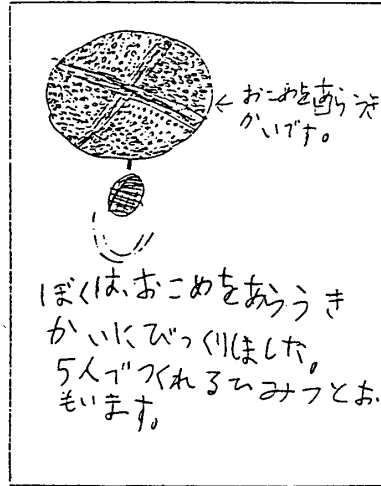 ←おこめをあらうき
かいです。
ぼくは、おこめをあらうき
かいにびっくりしました。
5人でつくれるひみつとお
もいます。